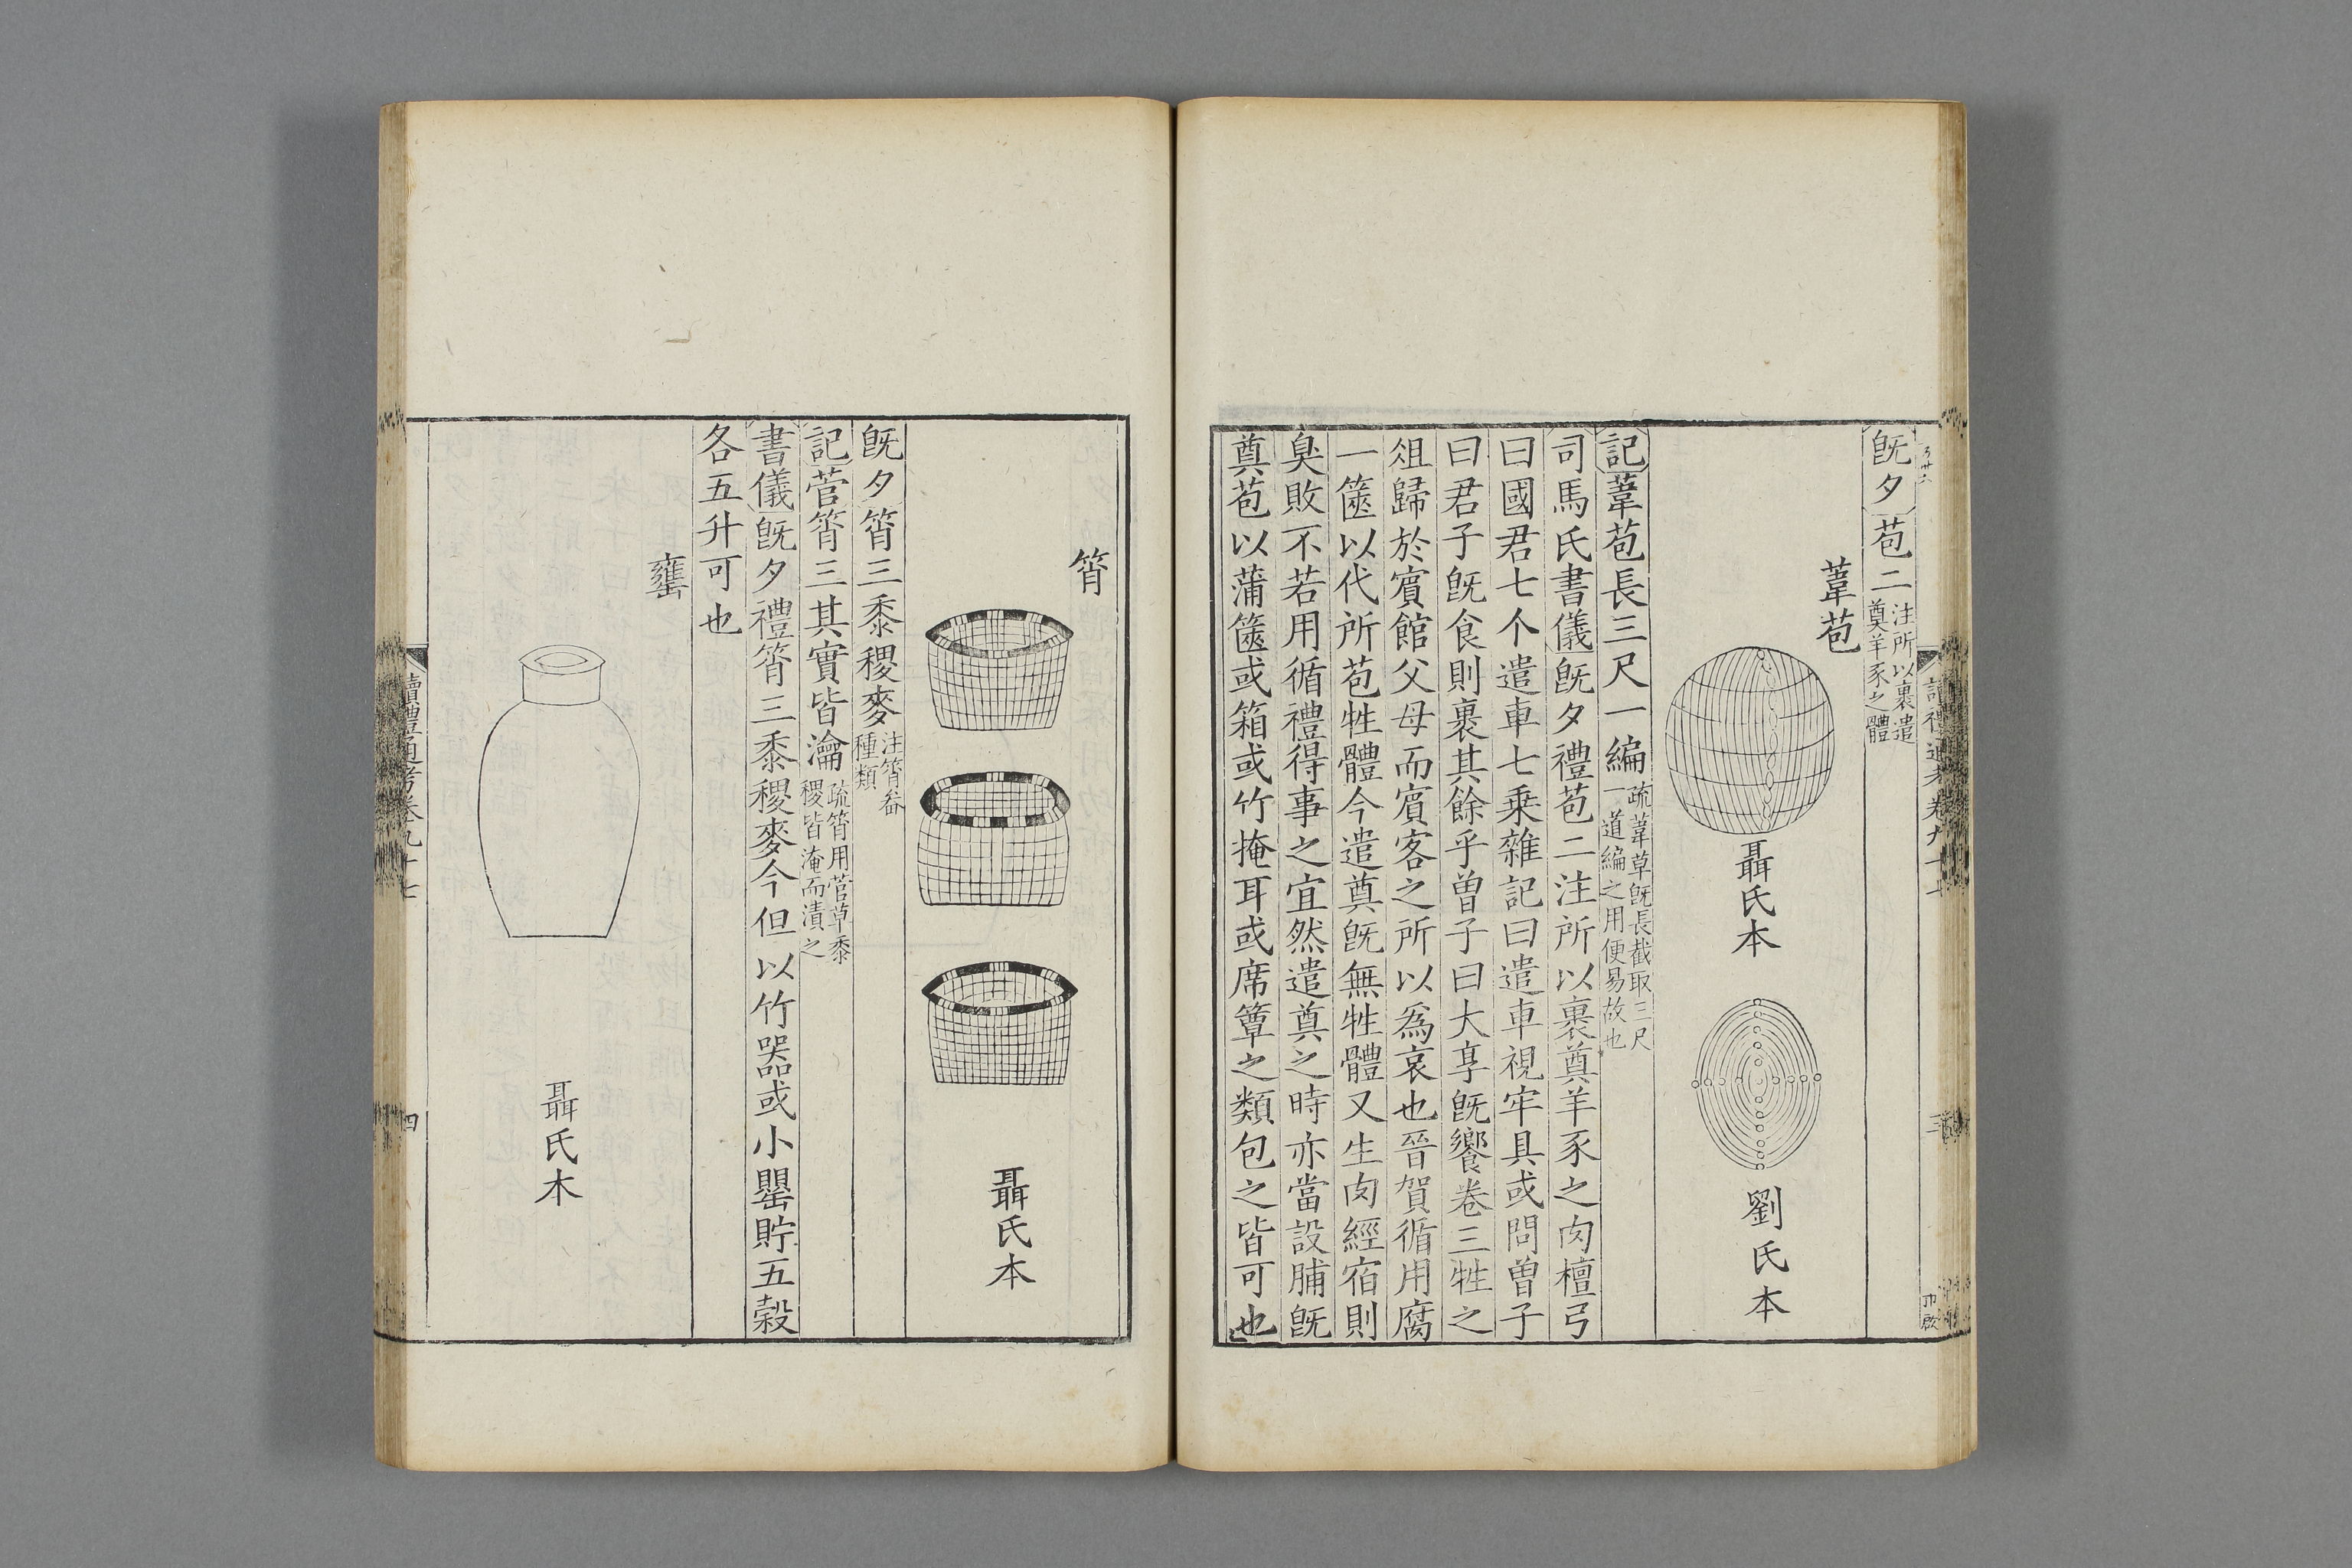 既夕苞二注所以裹遣奠羊豕之體
葦苞
聶氏本
劉氏本
記葦苞長三尺一編疏葦草既長截取三尺一道編之用便易故也
司馬氏書儀既夕禮苞二注所以裹奠羊豕之肉檀弓
曰國君七个遣車七乗雜記曰遣車視牢具或問曾子
曰君子既食則裹其餘乎曾子曰大享既饗卷三牲之
俎歸於賓館父母而賓客之所以爲哀也晉賀循用腐
一篋以代所苞牲體今遣奠既無牲體又生肉經宿則
臭敗不若用循禮得事之宜然遣奠之時亦當設脯既
奠苞以蒲篋或箱或竹掩耳或席簟之類包之皆可也
讀禮通考卷九十七
三
筲
聶氏本
既夕筲三黍稷麥注筲畚種類
記菅筲三其實皆瀹疏筲用菅草黍稷皆淹而漬之
書儀既夕禮筲三黍稷麥今但以竹器或小罌貯五穀
各五升可也
罋
聶氏本
讀禮通考卷九十七
四